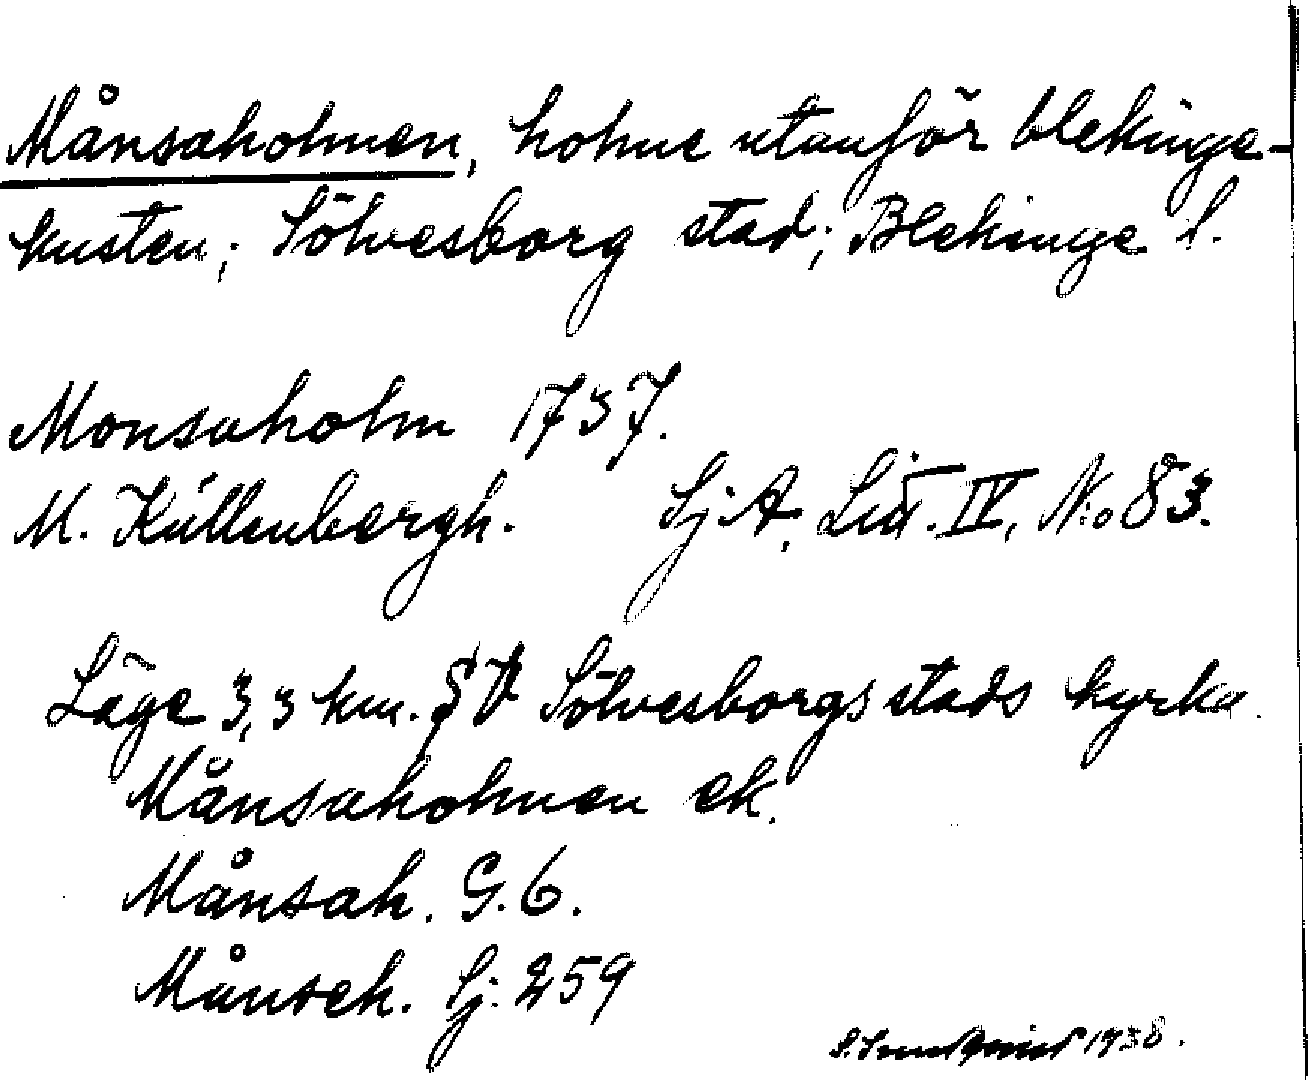 Månsaholmen, holme utanför blekinge-
kusten; Sölvesborg stad; Blekinge l.
Monsaholm 1737.
M. Küllenbergh. Sj.A. Lit. IV, N:o 83.
Läge 3,3 km. SV Sölvesborgs stads kyrka.
Månsaholmen ek.
Månsah. G. 6.
Månseh. Sj. 259
1938.